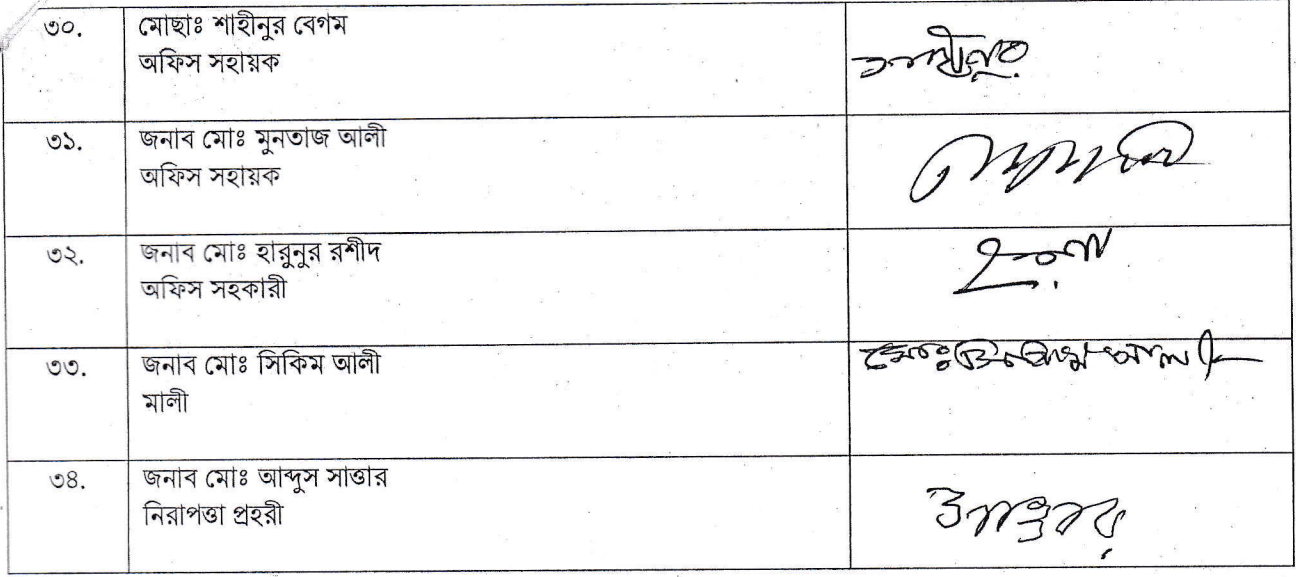 ৩০. মোছাঃ শাহীনুর বেগম
অফিস সহায়ক
শাহীনুর
৩১. জনাব মোঃ মুনতাজ আলী
অফিস সহায়ক
৩২. জনাব মোঃ হারুনুর রশীদ
অফিস সহকারী
৩৩. জনাব মোঃ সিকিম আলী
মালী
৩৪. জনাব মোঃ আব্দুস সাত্তার
নিরাপত্তা প্রহরী